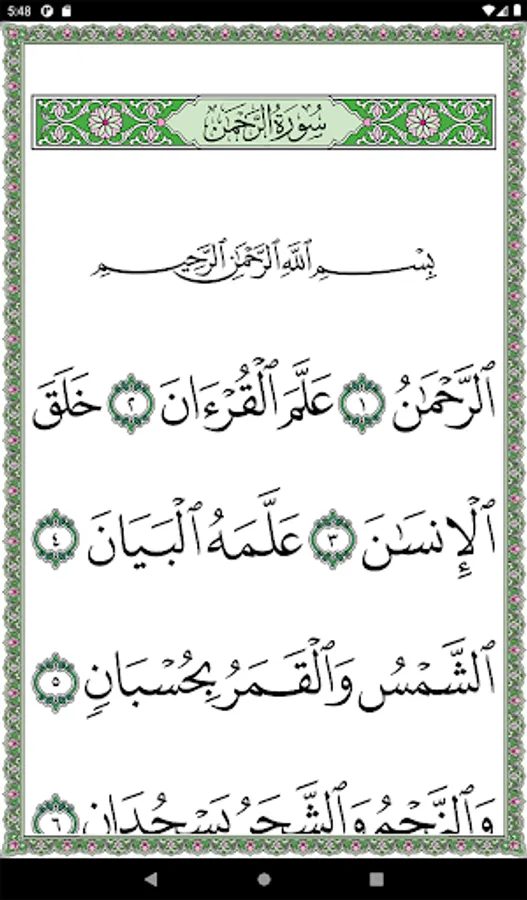 5:48
سُورَةُ الرَّحْمَٰن
بِسْمِ ٱللَّهِ ٱلرَّحْمَٰنِ ٱلرَّحِيمِ
ٱلرَّحْمَٰنُ ١ عَلَّمَ ٱلْقُرْءَانَ ٢ خَلَقَ
ٱلْإِنسَٰنَ ٣ عَلَّمَهُ ٱلْبَيَانَ ٤
ٱلشَّمْسُ وَٱلْقَمَرُ بِحُسْبَانٍ ٥
وَٱلنَّجْمُ وَٱلشَّجَرُ يَسْجُدَانِ ٦